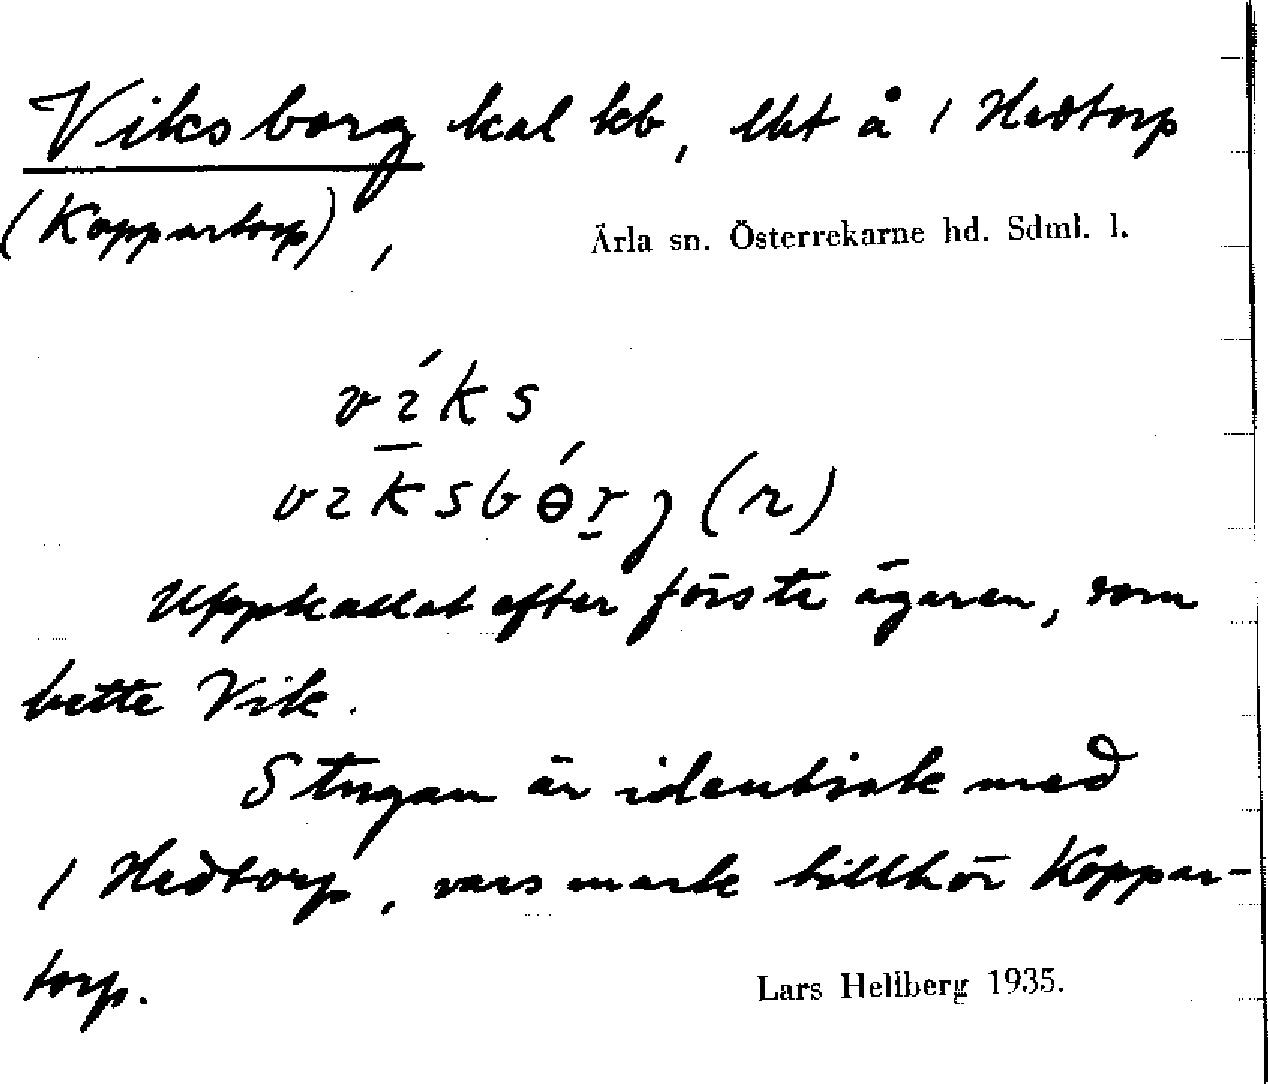 Viksborg kal kb, lht å / Hedtorp
(Koppartorp), Ärla sn. Österrekarne hd. Sdml. l.
víks
vıksbɵ́rg (r)
Uppkallat efter förste ägaren, som
hette Vik.
Stugan är identisk med
/ Hedtorp, vars mark tillhör Koppar-
torp.
Lars Hellberg 1935.